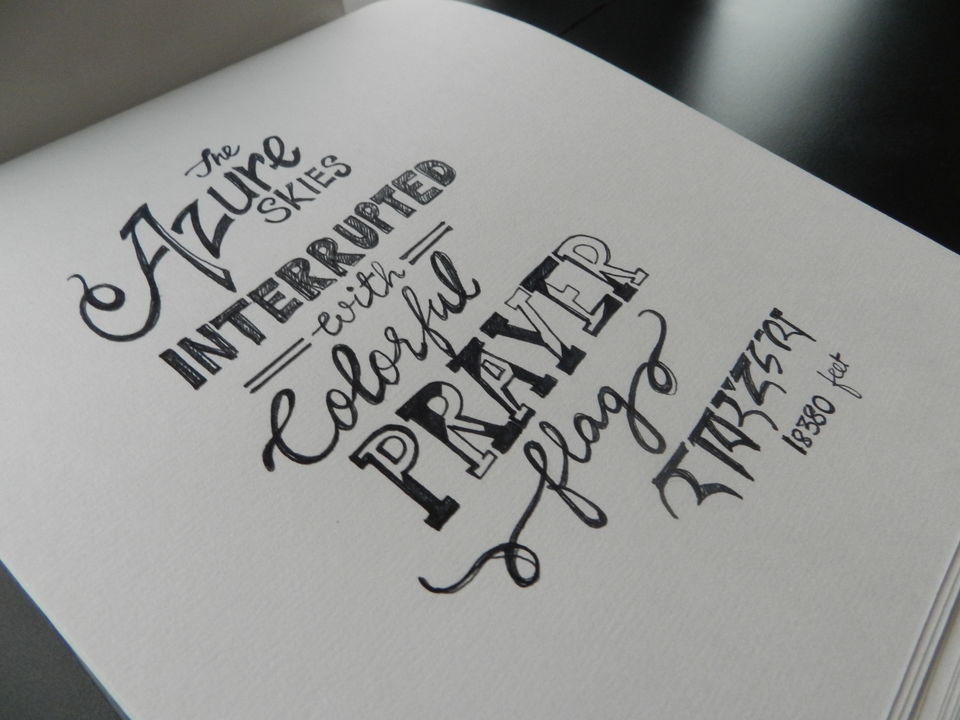 The
Azure
SKIES
INTERRUPTED
with
Colorful
PRAYER
flags
18380 feet